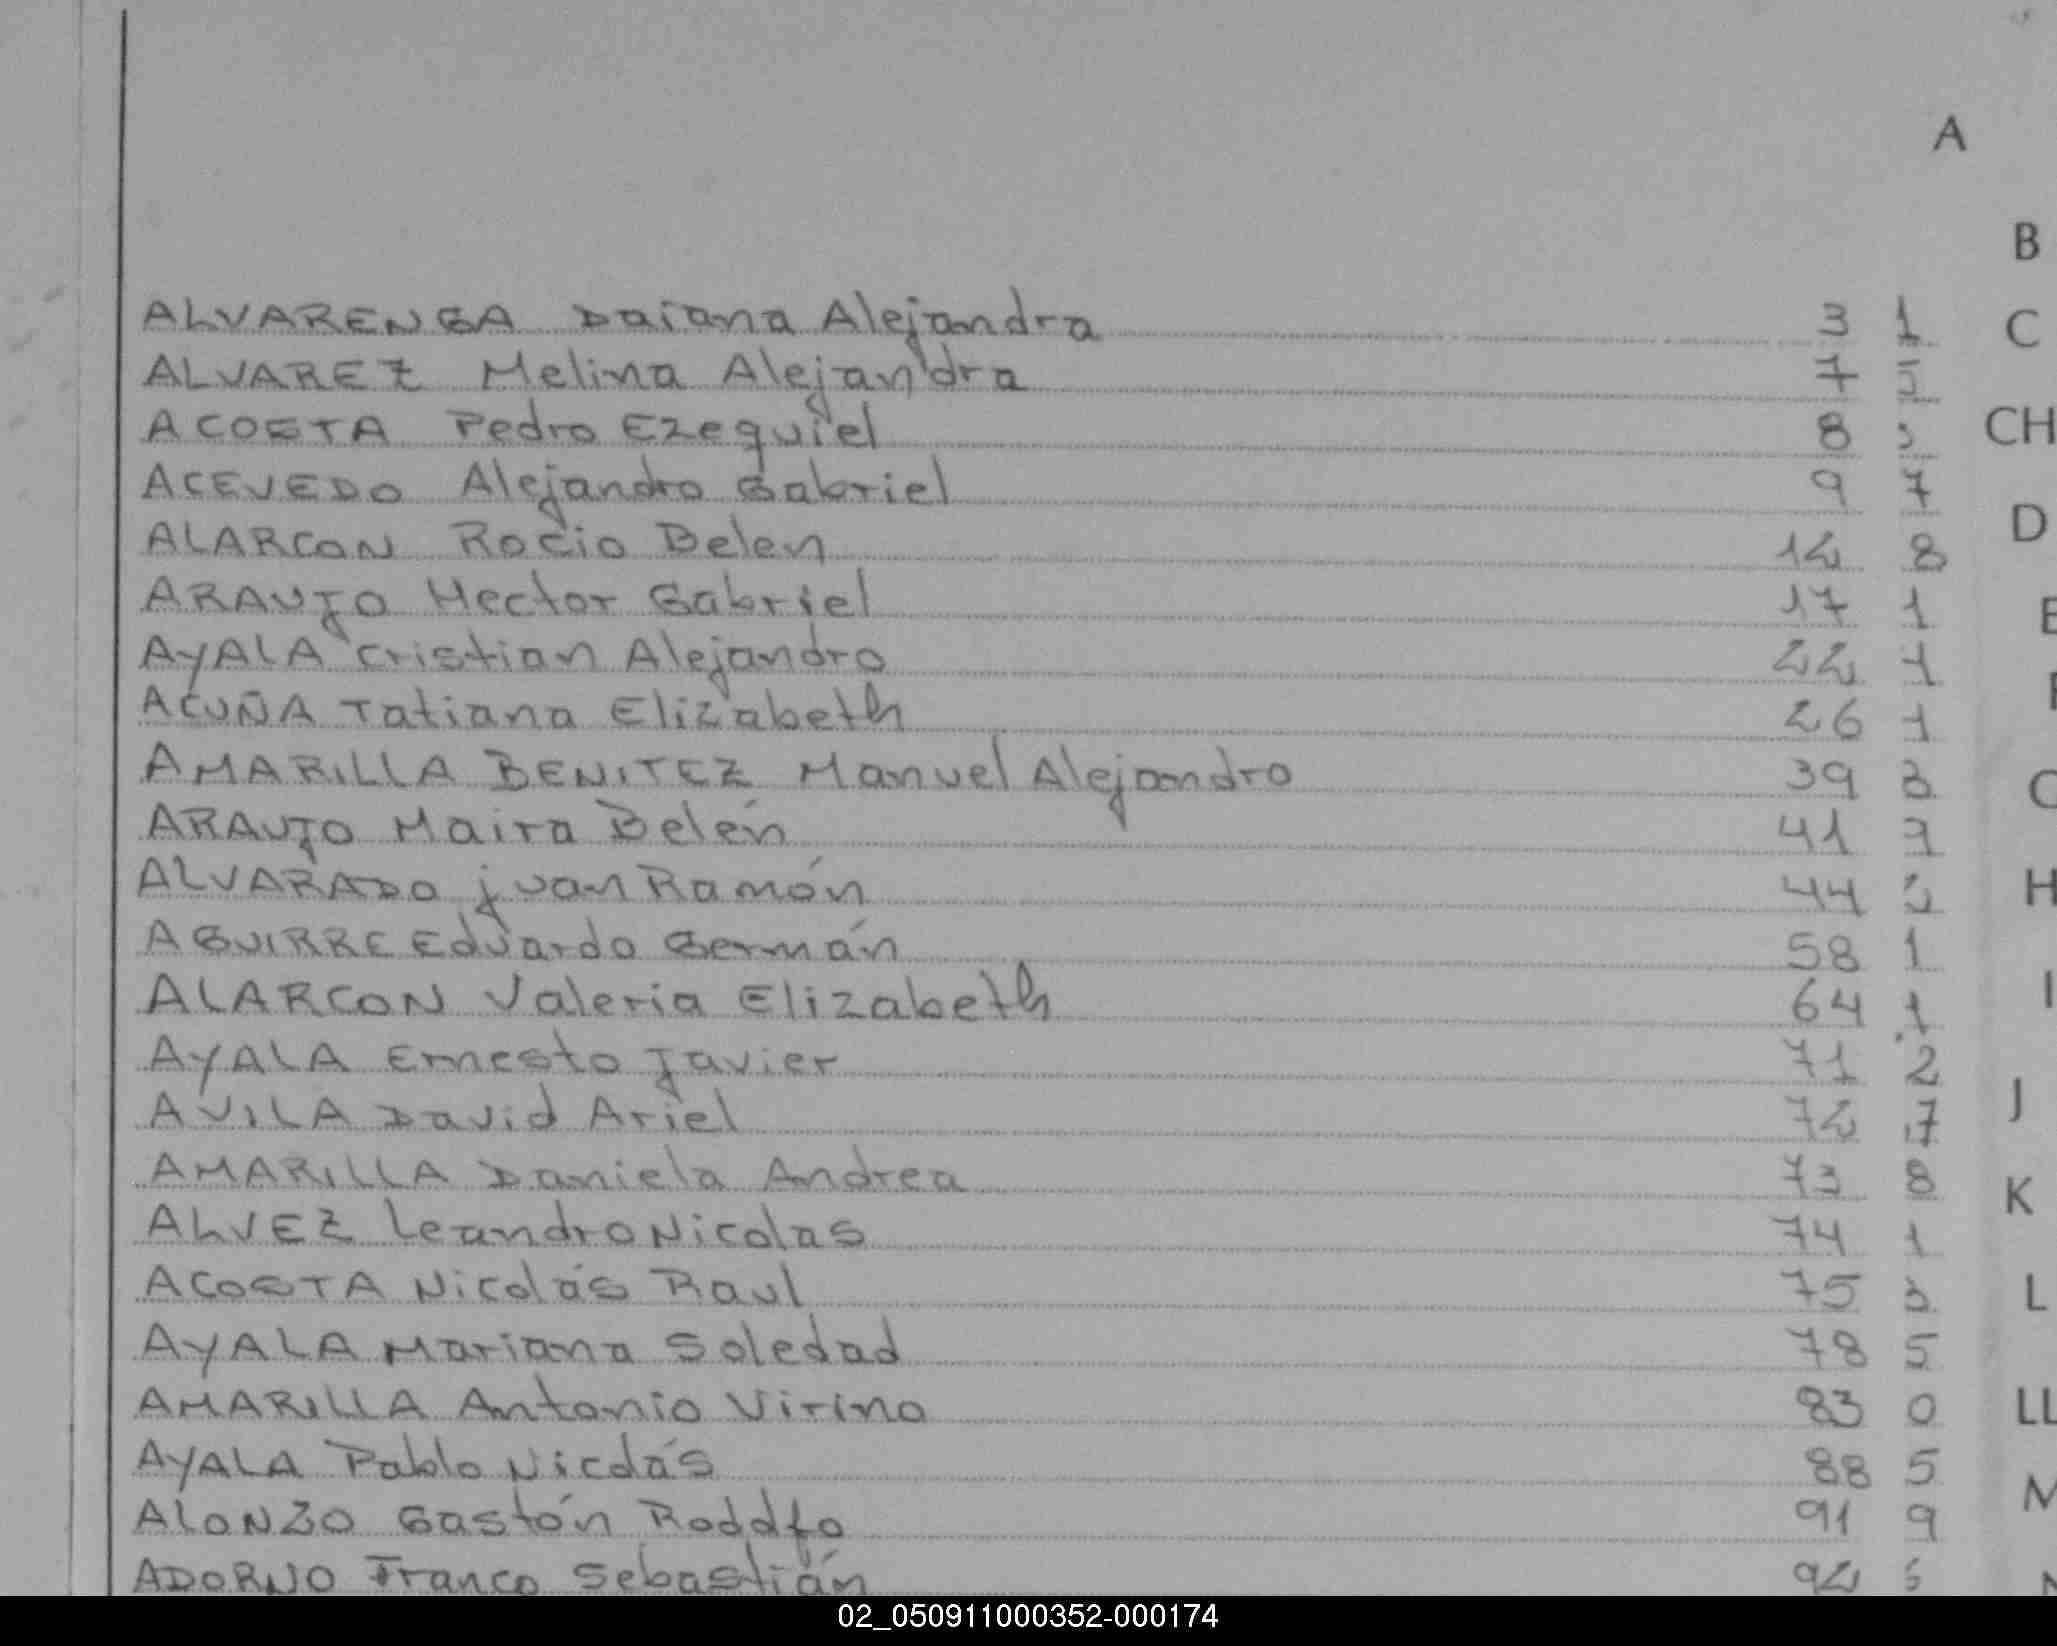 A
B
ALVARENGA Daiana Alejandra 3 1
C
ALVAREZ Melina Alejandra 7 5
ACOSTA Pedro Ezequiel 8
CH
ACEVEDO Alejandro Gabriel 9 7
D
ALARCON Rocio Belen 12 8
ARAUJO Hector Gabriel 17 1
AYALA Cristian Alejandro 22 1
ACUÑA Tatiana Elizabeth 26 1
AMARILLA BENITEZ Manuel Alejandro 39 3
ARAUJO Maira Belén 41 9
ALVARADO juan Ramón 44
H
AGUIRRE Eduardo Germán 58 1
ALARCON Valeria Elizabeth 64 1
I
AYALA Ernesto Javier 71 2
J
AVILA David Ariel 72 7
AMARILLA Daniela Andrea 73 8
K
ALVEZ Leandro Nicolas 74 1
ACOSTA Nicolás Raul 75 3
L
AYALA Mariana Soledad 78 5
AMARILLA Antonio Virino 83 0
LL
AYALA Pablo Nicolás 88 5
M
ALONZO Gastón Rodolfo 91 9
ADORNO Franco Sebastián 92
02_050911000352-000174